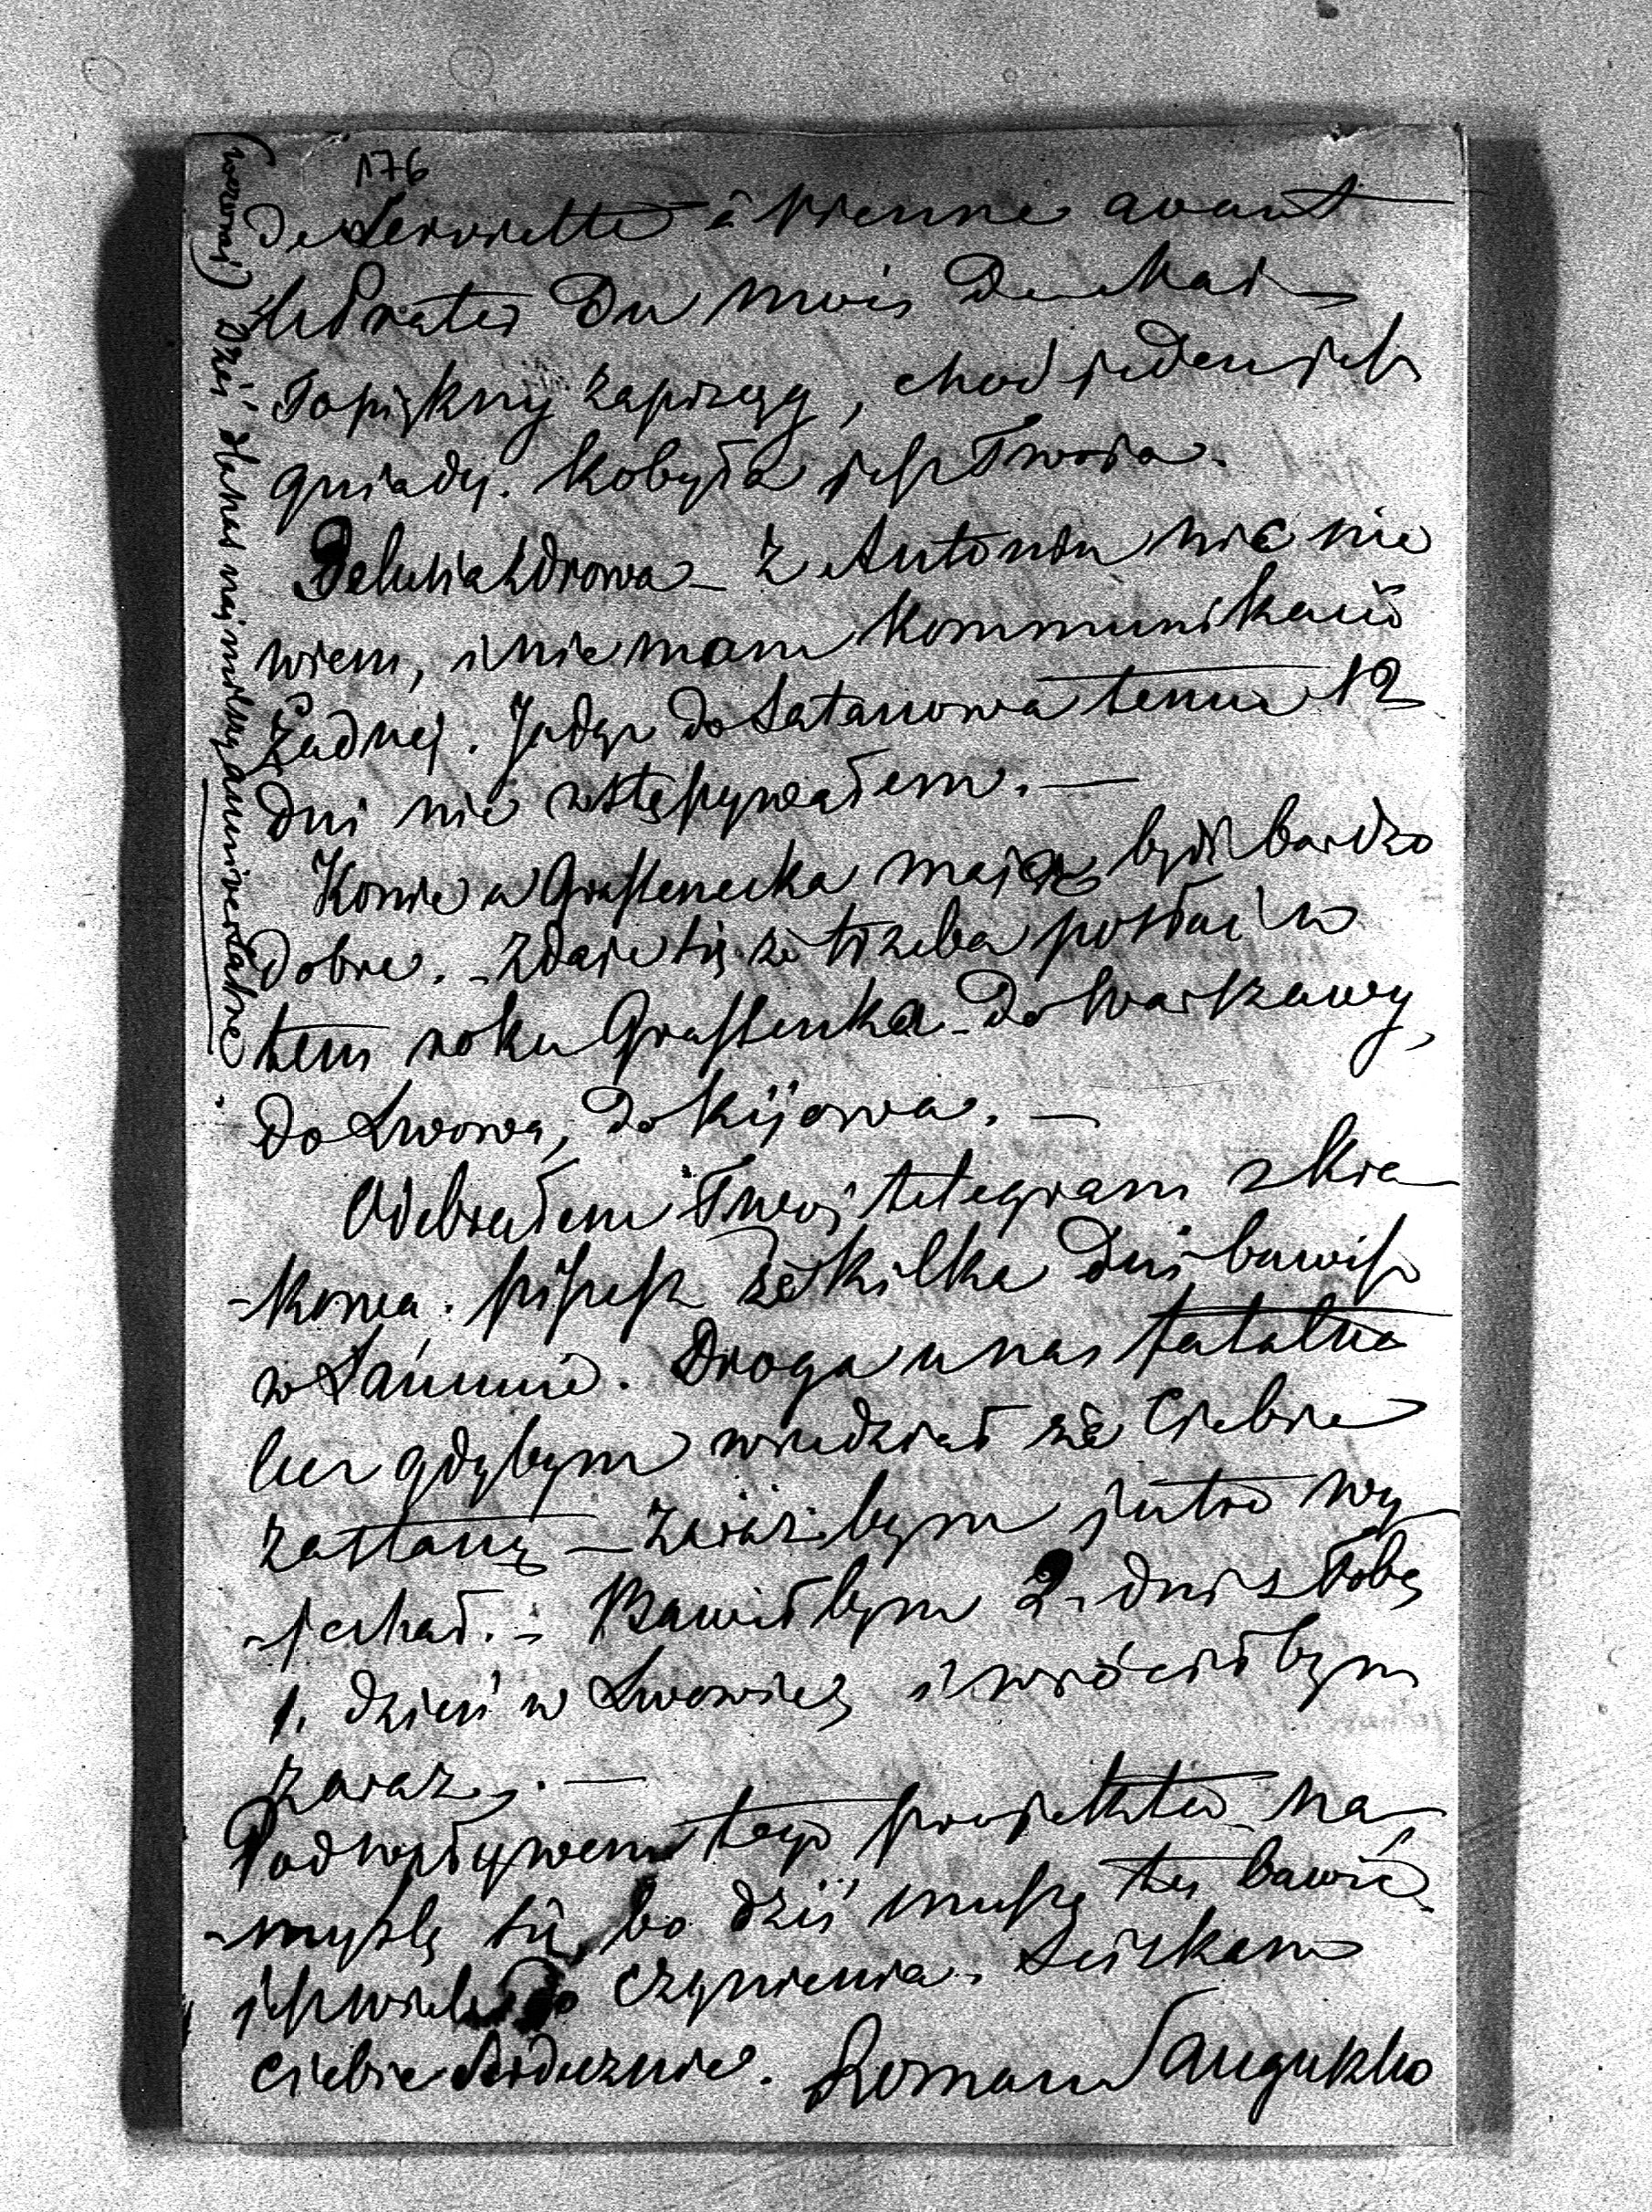 176
de Serviette à Vienne avant
le Prater du mois de Mai
To piękny zaprzęg, choć jeden jest
gniady. Kobyła jest Twoja.
zdrowa – z Antonin nic nie
wiem, i nie mam kommunikacii
żadnej. Jadąc do Satanowa temu 12
dni nie wstępywałem. —
Konie u Grafstenecka mają być bardzo
dobre. – zdaje się że trzeba posłać w
tem roku Grafstenka do Warszawy,
do Lwowa, do Kijowa. —
Odebrałem Twój telegram z Kra-
-kowa. piszesz że kilka dni bawisz
w Łańcucie. Droga u nas fatalna
lecz gdybym wiedział że Ciebie
zastanę – zarazbym jutro wy-
-jechał. – Bawiłbym 2. dni z Tobą
1. dzień w Lwowie, i wróciłbym
zaraz. —
Pod wpływem tego projektu na-
-myślę się, bo dziś muszę tu bawić
jest wiele do czynienia. Ściskam
Ciebie serdecznie. Roman Sanguszko
(wczoraj) Dziś słaba